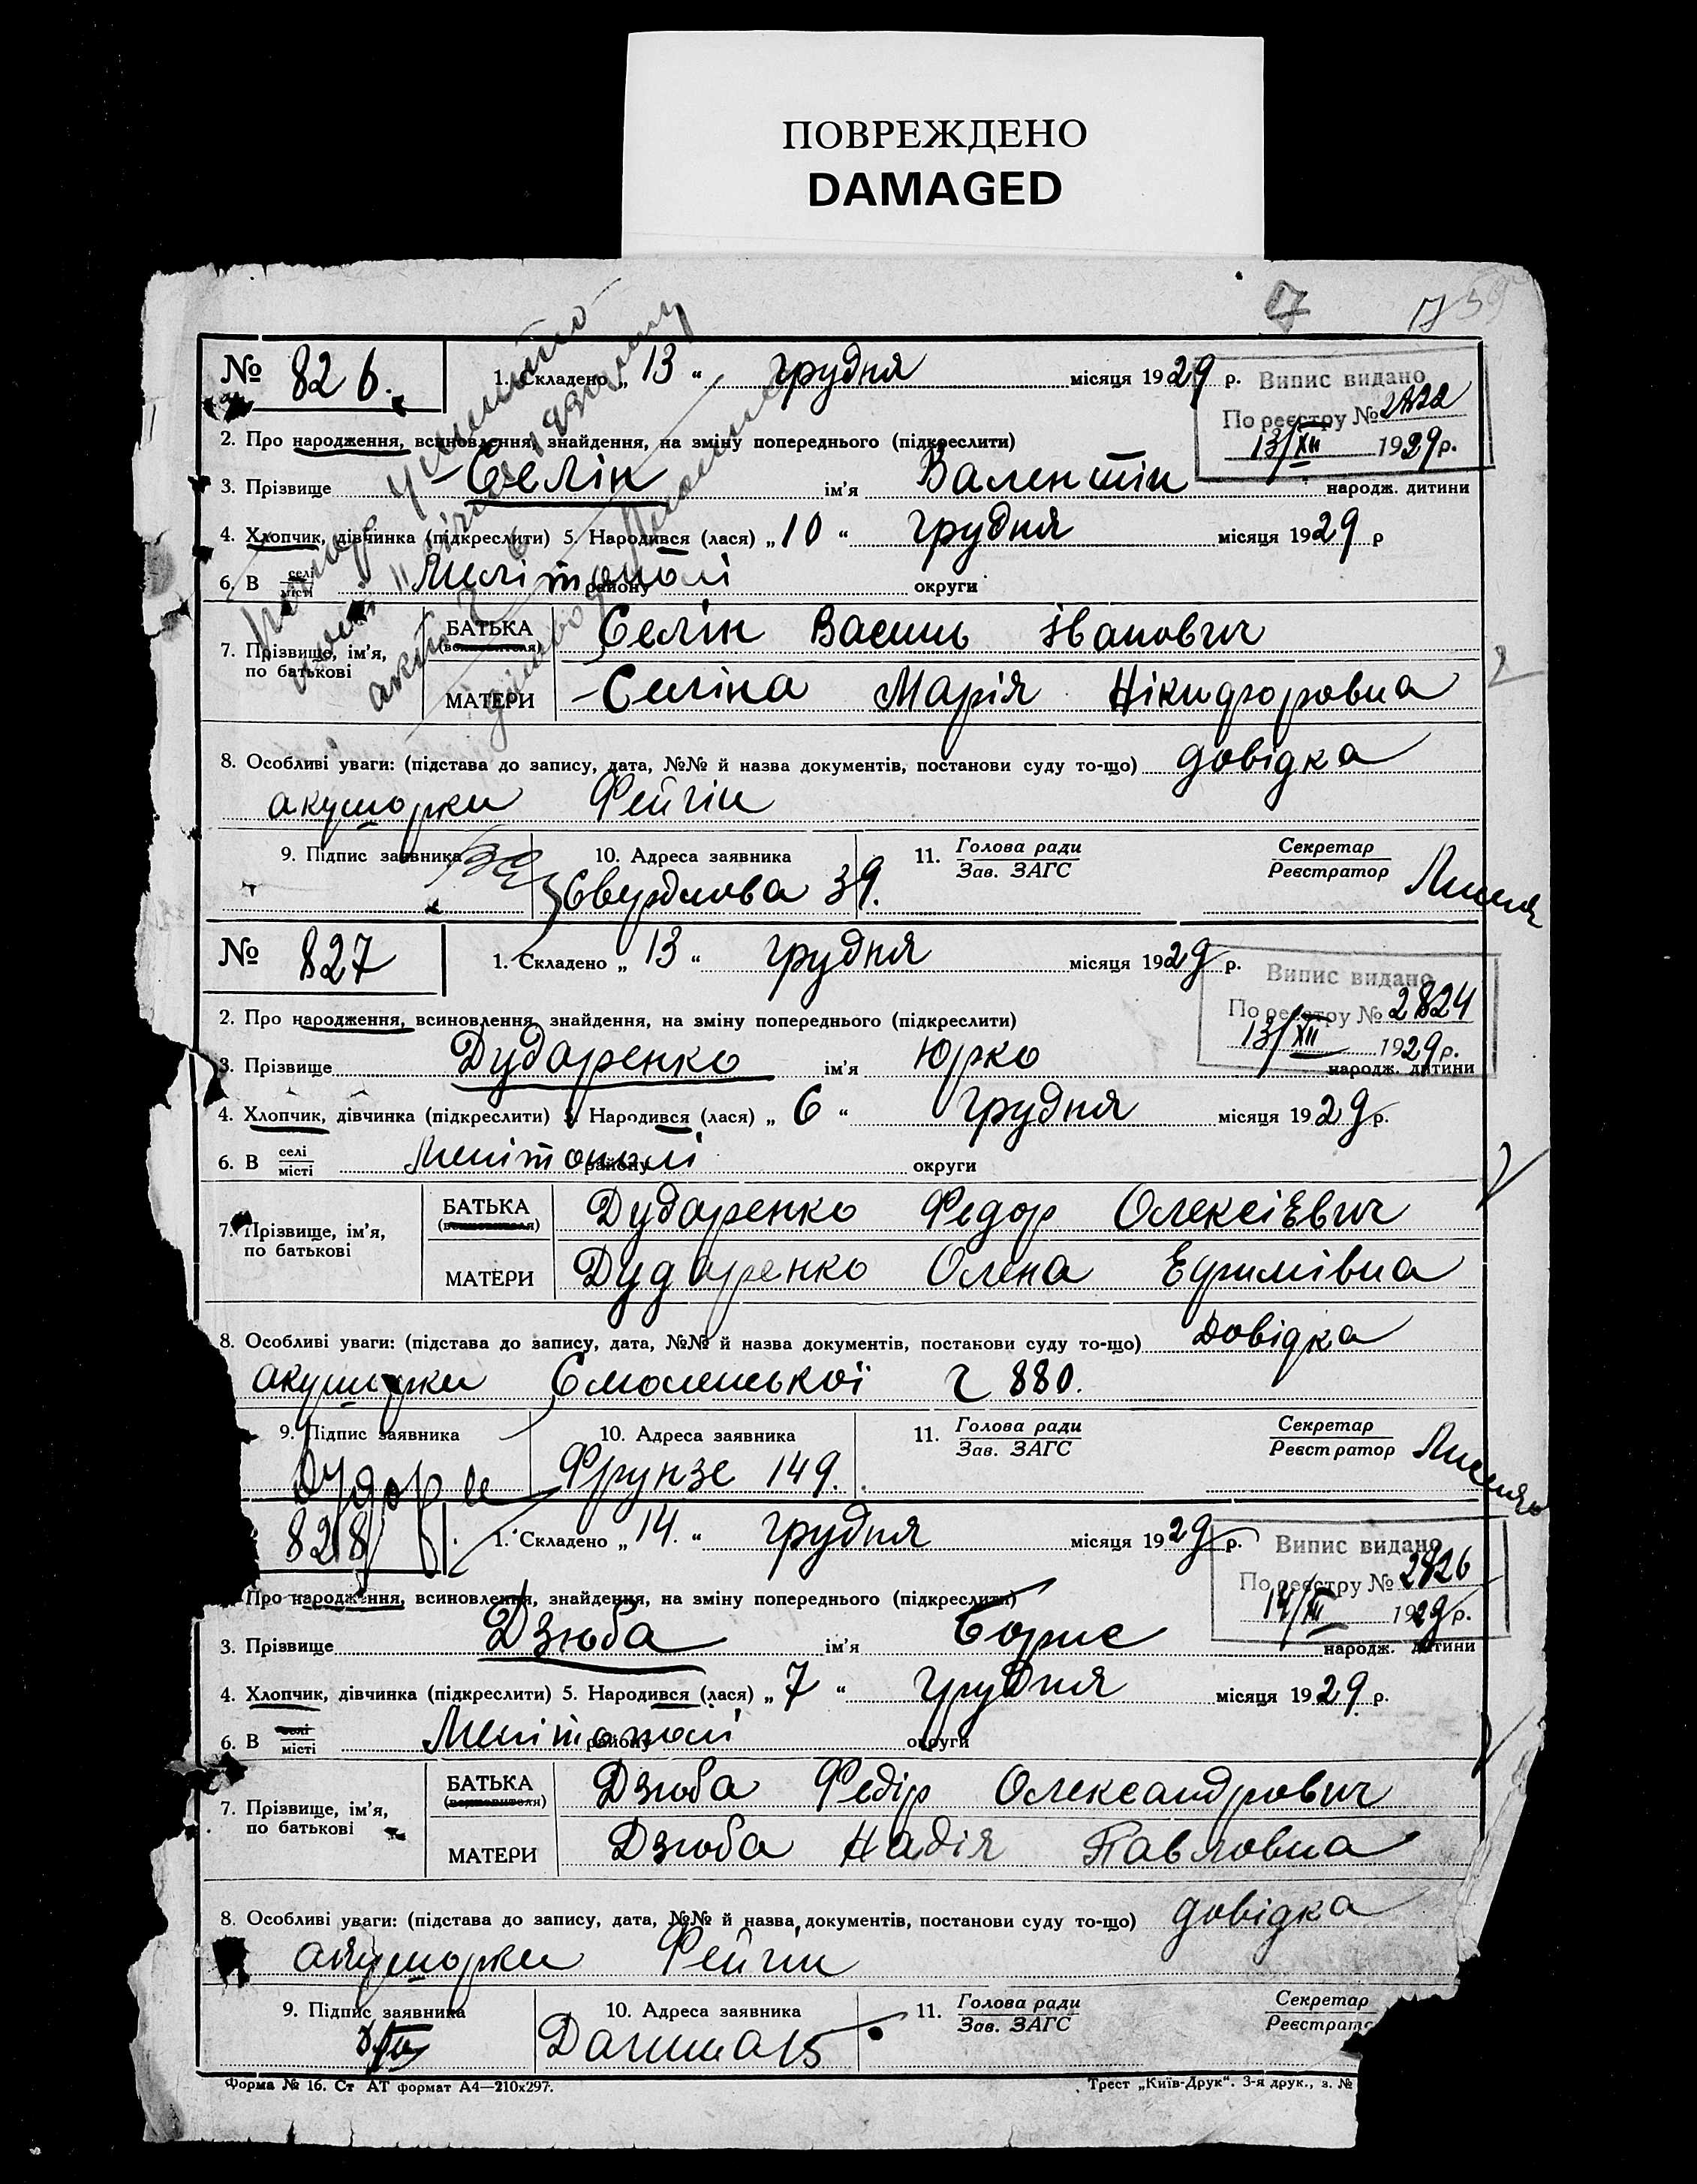 ПОВРЕЖДЕНО
DAMAGED
17
№ 826. 1. Складено „13“ грудня місяця 1929 р.
Випис видано
По реєстру №
13/XII 1929 р.
2. Про народження, всиновлення, знайдення, на зміну попереднього (підкреслити)
3. Прізвище Селін ім'я Валентін народж. дитини
4. Хлопчик, дівчинка (підкреслити) 5. Народився (лася) „10“ грудня місяця 1929 р
6. В селі місті Мелітополі району округи
7. Прізвище, ім'я, по батькові
БАТЬКА (всиновителя) Селін Василь Іванович
МАТЕРИ Селіна Марія Нікифоровна
8. Особливі уваги: (підстава до запису, дата, №№ й назва документів, постанови суду то-що) довідка
акушорки Фейгін
9. Підпис заявника 10. Адреса заявника 11. Голова ради Зав. ЗАГС Секретар Реєстратор
Свердлова 39.
№ 827 1. Складено „13“ грудня місяця 1929 р.
Випис видано
По реєстру № 2824
13/XII 1929 р.
2. Про народження, всиновлення, знайдення, на зміну попереднього (підкреслити)
3. Прізвище Дударенко ім'я Юрко народж. дитини
4. Хлопчик, дівчинка (підкреслити) 5. Народився (лася) „6“ грудня місяця 1929 р.
6. В селі місті Мелітополі району округи
7. Прізвище, ім'я, по батькові
БАТЬКА (всиновителя) Дударенко Федор Олексієвич
МАТЕРИ Дударенко Олена Ефимівна
8. Особливі уваги: (підстава до запису, дата, №№ й назва документів, постанови суду то-що) довідка
акушорки Смоленської ч 880.
9. Підпис заявника 10. Адреса заявника 11. Голова ради Зав. ЗАГС Секретар Реєстратор
Фрунзе 149.
828 1. Складено „14.“ грудня місяця 1929 р.
Випис видано
По реєстру № 2826
14/XII 1929 р.
Про народження, всиновлення, знайдення, на зміну попереднього (підкреслити)
3. Прізвище Дзюба ім'я Борис народж. дитини
4. Хлопчик, дівчинка (підкреслити) 5. Народився (лася) „7“ грудня місяця 1929 р.
6. В селі місті Мелітополі району округи
7. Прізвище, ім'я, по батькові
БАТЬКА (всиновителя) Дзюба Федір Олександрович
МАТЕРИ Дзюба Надія Павловна
8. Особливі уваги: (підстава до запису, дата, №№ й назва документів, постанови суду то-що) довідка
акушорки Фейгін
9. Підпис заявника 10. Адреса заявника 11. Голова ради Зав. ЗАГС Секретар
Форма № 16. Ст АТ формат А4—210х297. Трест „Київ-Друк“. 3-я друк., з. №